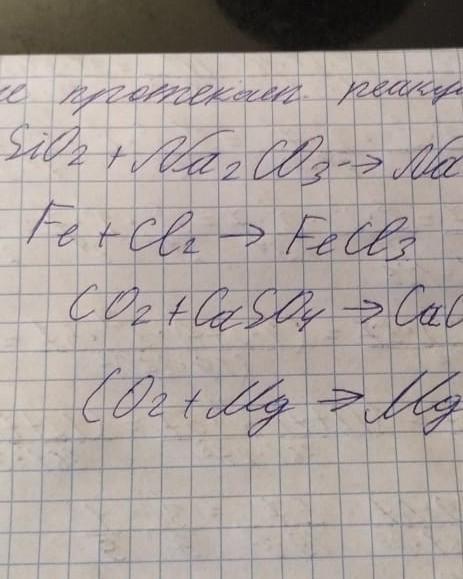 не протекает реакц
SiO2 + Na2CO3 → Na
Fe + Cl2 → FeCl3
CO2 + CaSO4 → CaC
CO2 + Mg → Mg